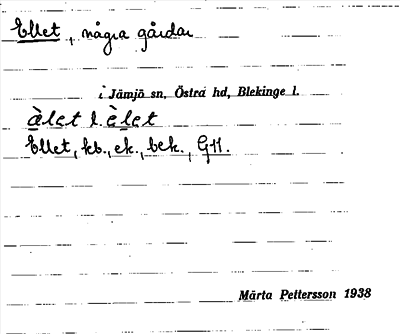 Ellet, några gårdar
i Jämjö sn, Östra hd, Blekinge l.
àlet l. èlet
Ellet, kb., ek., bek., G11.
Märta Pettersson 1938